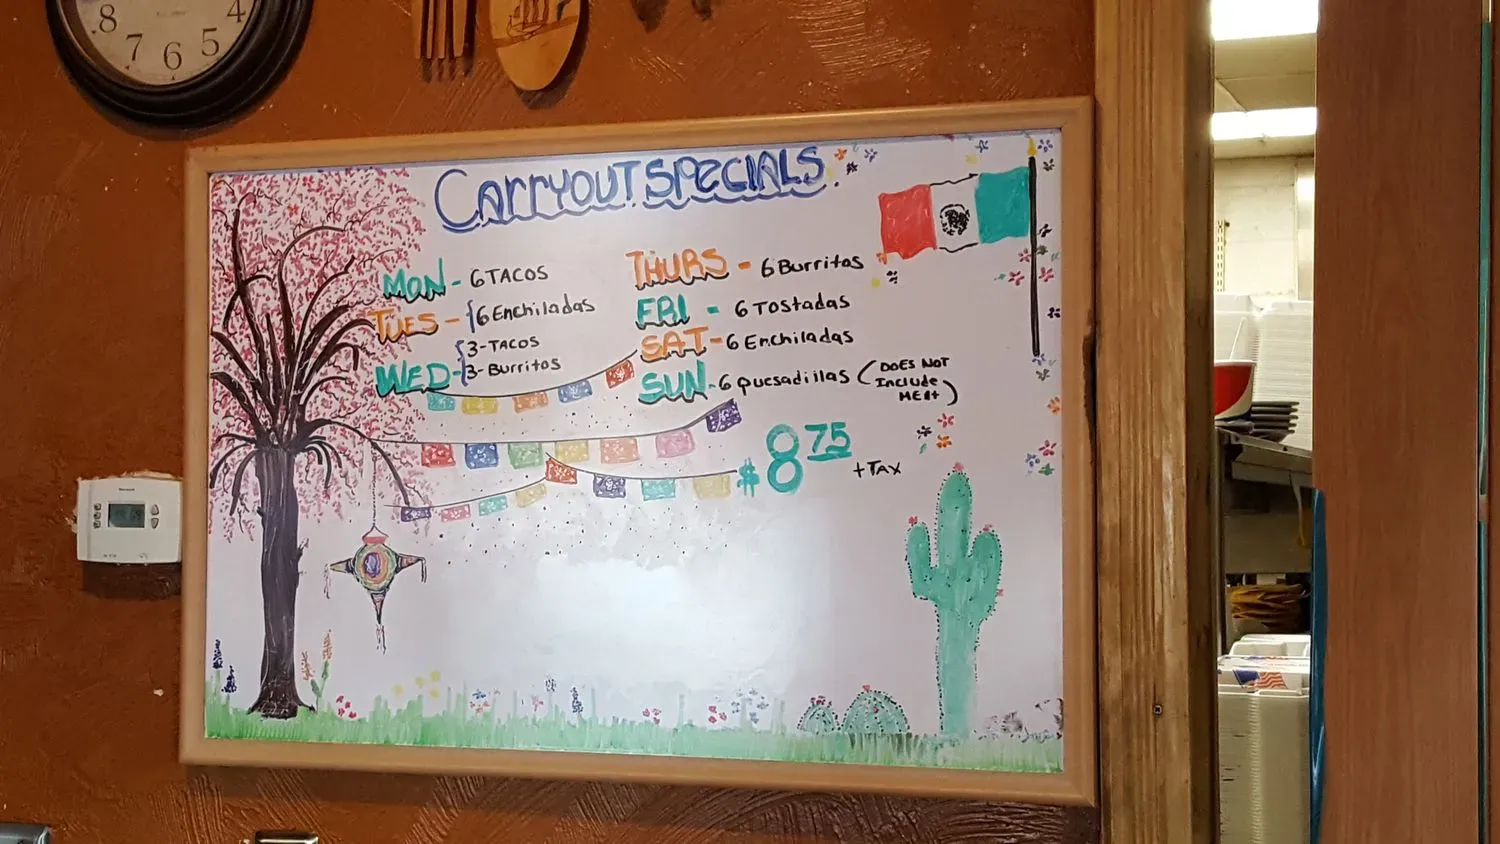 8
7
6
5
4
CArryOUT SPECIALS
MON - 6 TACOS
TUES - { 6 Enchiladas
WED - { 3 - TACOS
3 - Burritos
THURS - 6 Burritos
FRI - 6 TOSTadas
SAT - 6 Enchiladas
SUN - 6 quesadillas ( DOES NOT
Include
MEAt )
$8 75
+ TAX